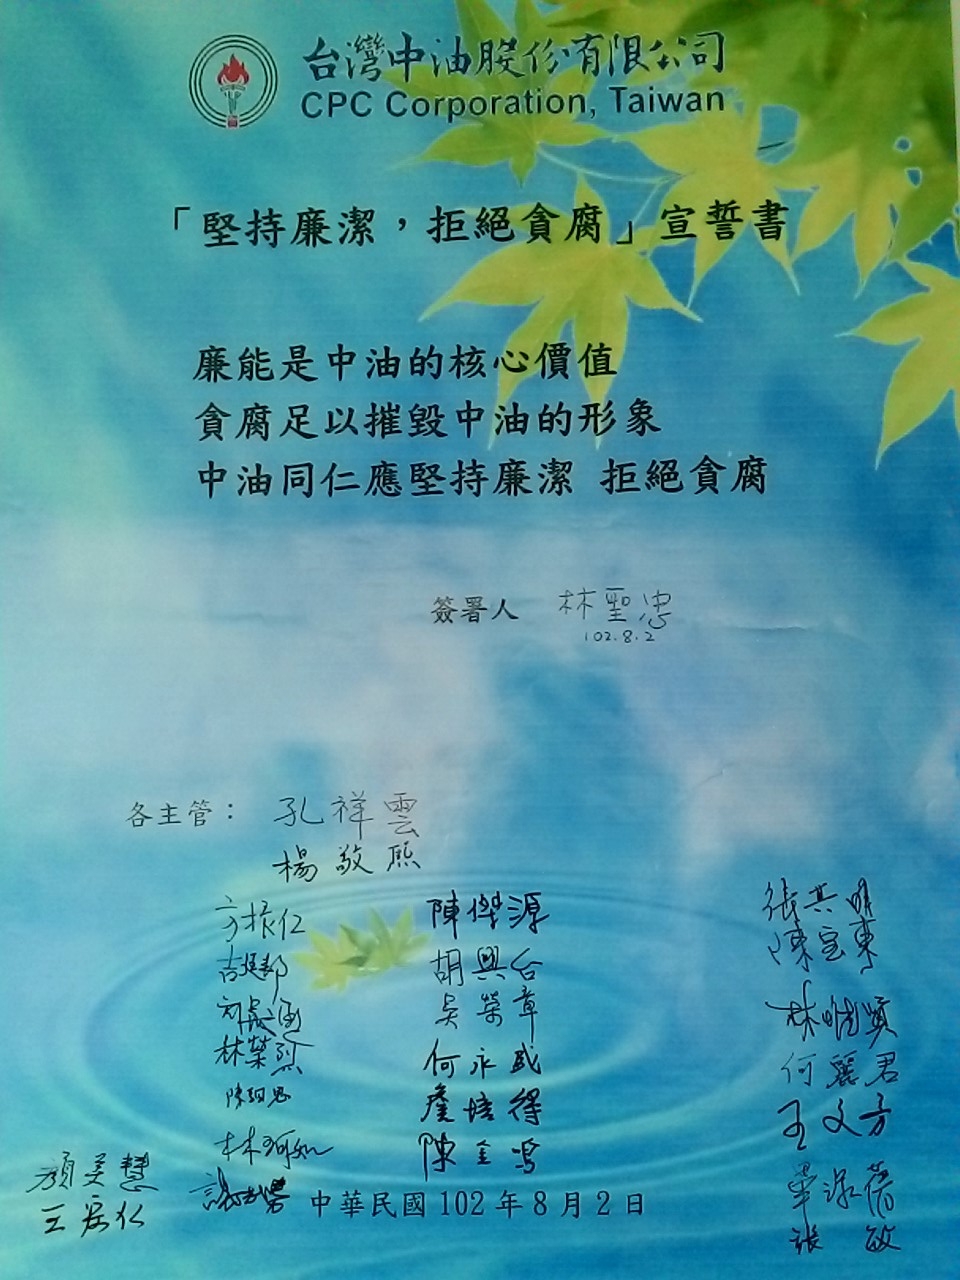 台灣中油股份有限公司
CPC Corporation, Taiwan
「堅持廉潔，拒絕貪腐」宣誓書
廉能是中油的核心價值
貪腐足以摧毀中油的形象
中油同仁應堅持廉潔 拒絕貪腐
簽署人 林聖忠
102.8.2
各主管： 孔祥雲
楊敬熙
方振仁
陳傑源
胡興台
吳榮章
林榮烈
何永盛
詹培得
陳金鳴
張其明
陳室東
何麗君
王文方
張敏
顏美慧
王宏仁
中華民國102年8月2日